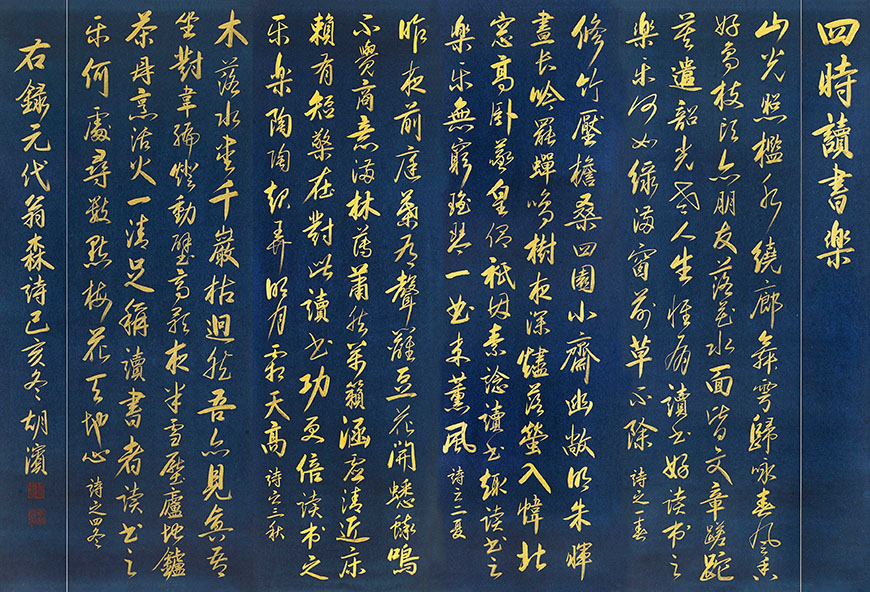 四時讀書楽
山光照檻水繞廊舞雩歸咏春風香
好鳥枝頭亦朋友落花水面皆文章蹉跎
莫遣韶光老人生惟有讀书好讀书之
楽乐何如綠滿窗前草不除 詩之一春
修竹壓檐桑四圍小齋幽敞明朱暉
晝長吟罷蟬鳴樹夜深燼落螢入幃北
窓高卧羲皇侶祇因素諗讀书趣读书之
楽乐無窮瑤琴一曲来薰風 詩之二夏
昨夜前庭葉有聲籬豆花開蟋蟀鳴
不覺商意滿林薄蕭然萬籟涵虛清近床
賴有短檠在對此讀书功更倍读书之
乐楽陶陶起弄明月霜天高 詩之三秋
木落水盡千巖枯迥然吾亦見真吾
坐對韋編燈動壁高歌夜半雪壓廬地鑪
茶鼎烹活火一清足稱讀書者读书之
乐何處尋數點梅花天地心 詩之四冬
右錄元代翁森詩己亥冬胡濱